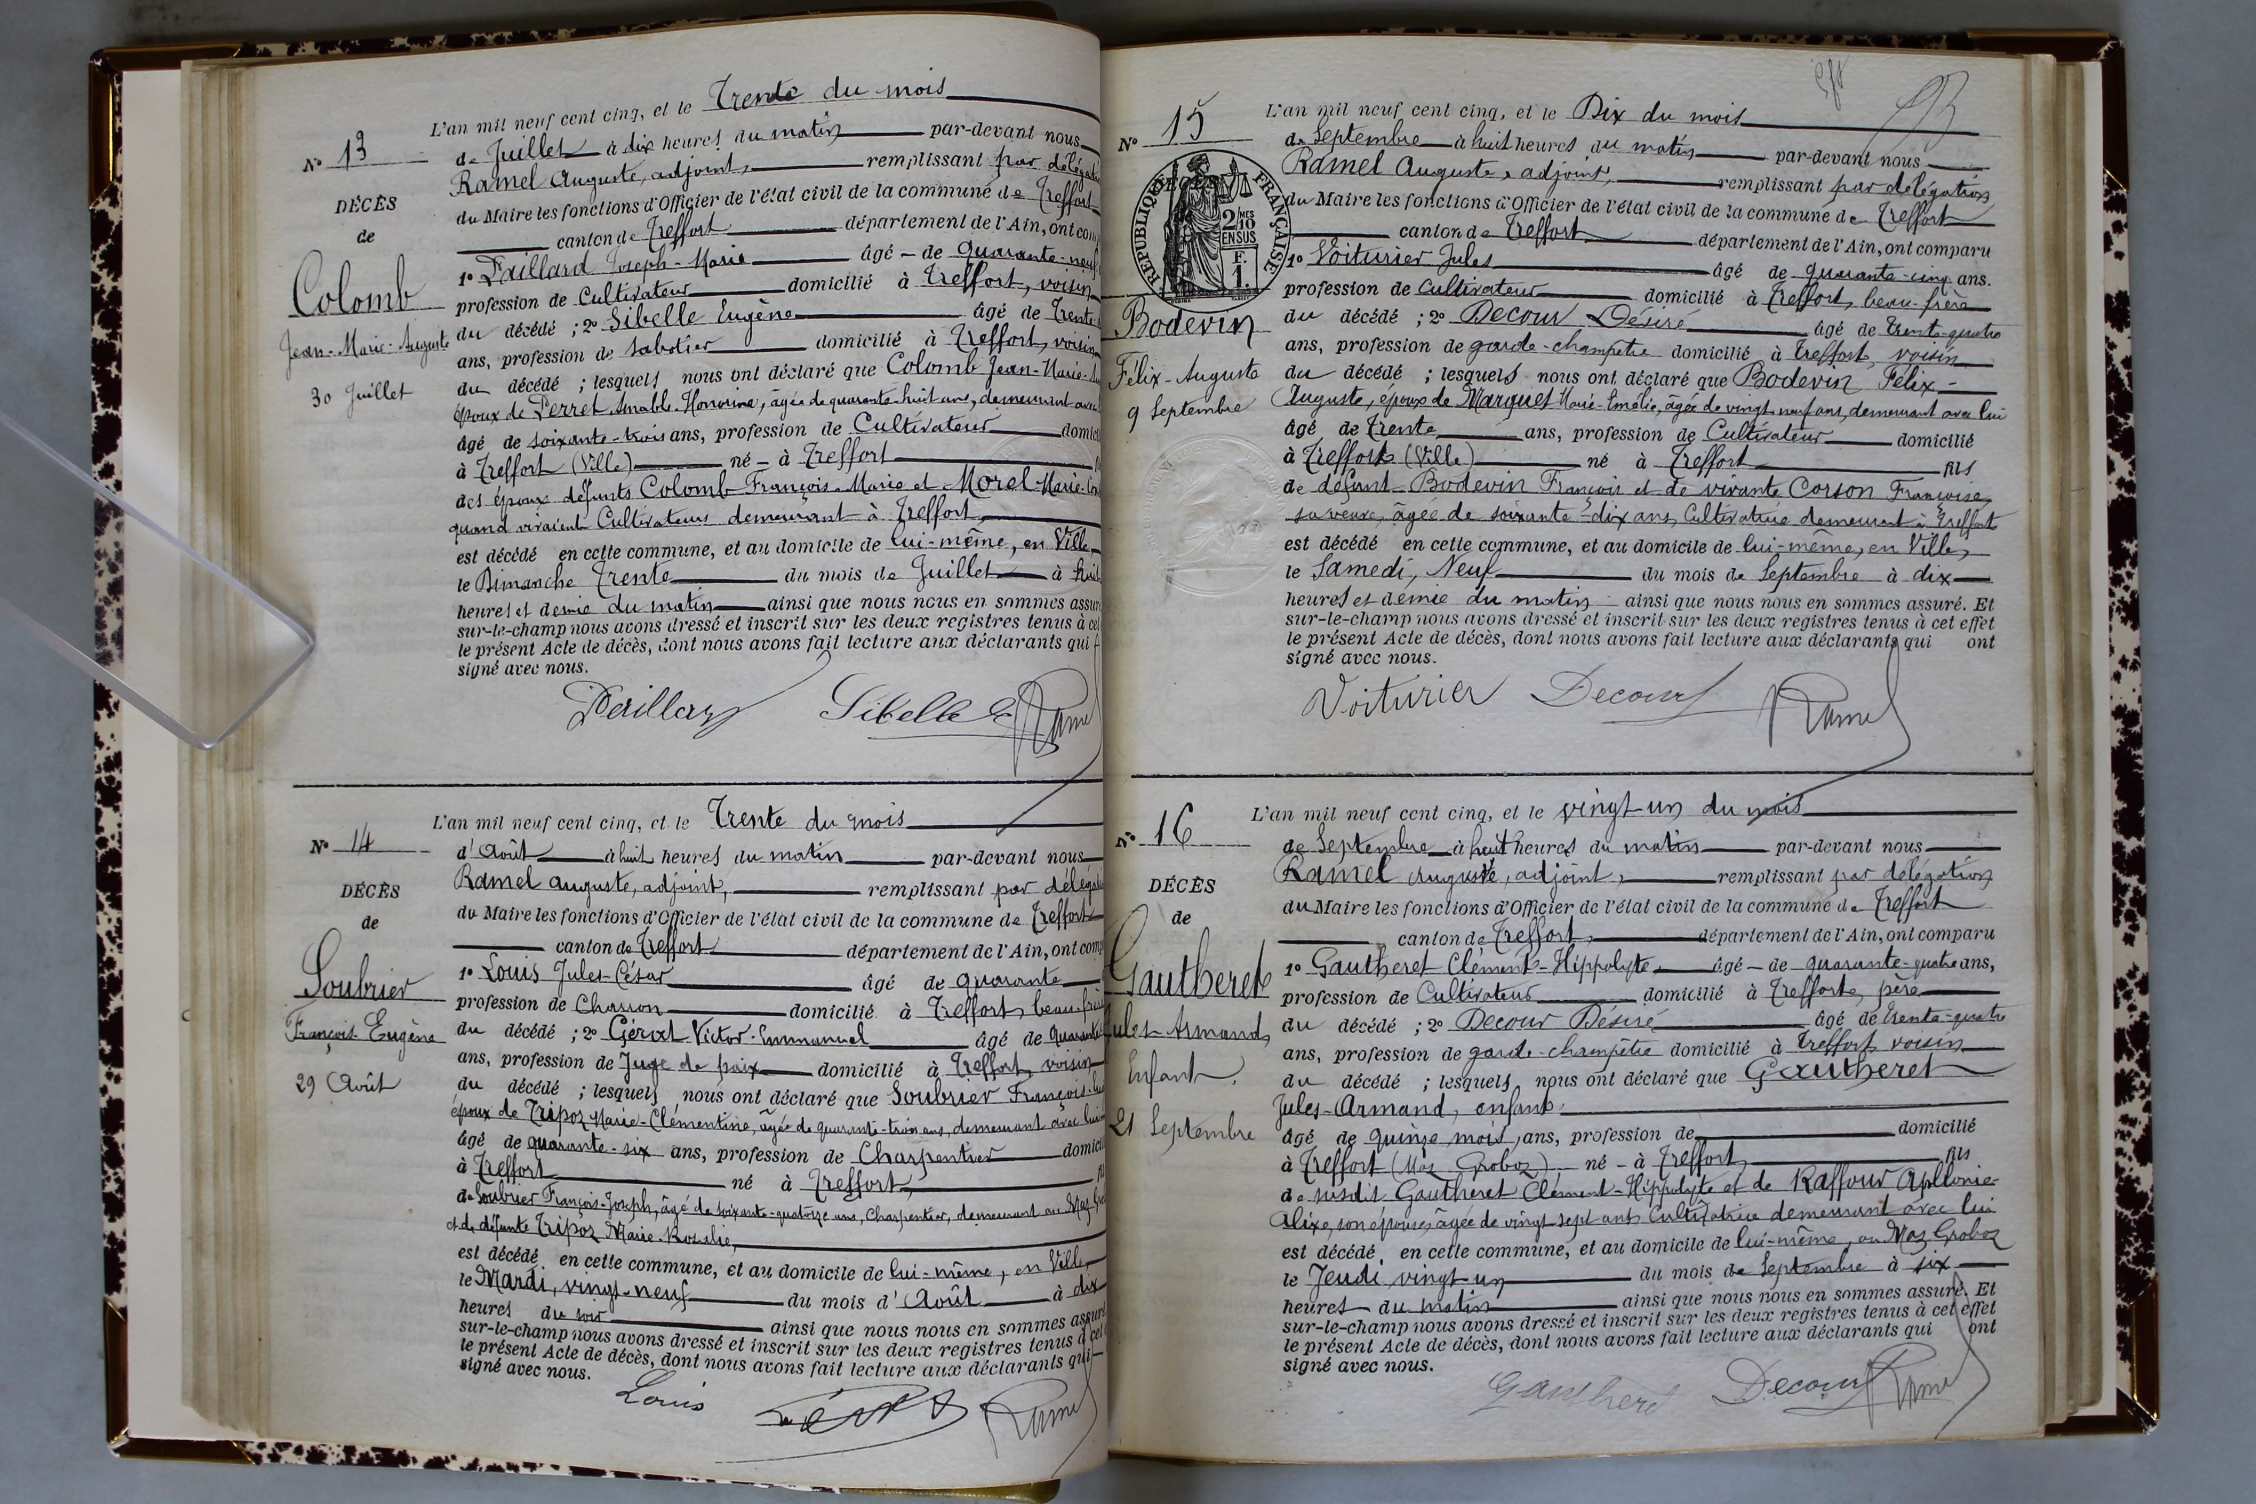 L'an mil neuf cent cinq, et le Trente du mois
N° 13
de Juillet à dix heures du matin par-devant nous
Ramel Auguste, adjoint, remplissant par
DÉCÈS
du Maire les fonctions d'Officier de l'état civil de la commune de Treffort
de
canton de Treffort département de l'Ain, ont
1° Paillard Joseph-Marie âgé de quarante-neuf
Colomb
profession de Cultivateur domicilié à Treffort, voisin
Jean-Marie-Auguste
du décédé ; 2° Sibelle Eugène âgé de Trente
ans, profession de Sabotier domicilié à Treffort, voisin
30 Juillet
du décédé ; lesquels nous ont déclaré que Colomb Jean-Marie
époux de Perret Amable-Honorine, âgée de quarante-huit ans, demeurant avec
âgé de soixante-trois ans, profession de Cultivateur
à Treffort (Ville) né à Treffort
des époux défunts Colomb François-Marie et Morel Marie
quand vivaient Cultivateurs demeurant à Treffort,
est décédé en cette commune, et au domicile de lui-même, en Ville,
le Dimanche Trente du mois de Juillet à huit
heures et demie du matin ainsi que nous nous en sommes
sur-le-champ nous avons dressé et inscrit sur les deux registres tenus à
le présent Acte de décès, dont nous avons fait lecture aux déclarants qui
signé avec nous.
Paillard Sibelle E Ramel
L'an mil neuf cent cinq, et le Trente du mois
N° 14
d'Août à huit heures du matin par-devant nous
DÉCÈS
Ramel Auguste, adjoint, remplissant par
de
du Maire les fonctions d'Officier de l'état civil de la commune de Treffort
canton de Treffort département de l'Ain, ont
Soubrier
1° Louis Jules-César âgé de quarante
François-Eugène
profession de Charron domicilié à Treffort, beau-frère
du décédé ; 2° Géral Victor-Emmanuel âgé de quarante
29 Août
ans, profession de Juge de paix domicilié à Treffort, voisin
du décédé ; lesquels nous ont déclaré que Soubrier François
époux de Tripoz Marie-Clémentine, âgée de quarante-trois ans, demeurant avec lui
âgé de quarante-six ans, profession de Charpentier
à Treffort né à Treffort,
de Soubrier François-Joseph, âgé de soixante-quatorze ans, Charpentier, demeurant au Maz
et de défunte Tripoz Marie-Rosalie,
est décédé en cette commune, et au domicile de lui-même, en Ville,
le Mardi, vingt-neuf du mois d'Août à dix
heures du soir ainsi que nous nous en sommes
sur-le-champ nous avons dressé et inscrit sur les deux registres tenus à cet
le présent Acte de décès, dont nous avons fait lecture aux déclarants qui
signé avec nous.
Louis Géral Ramel
L'an mil neuf cent cinq, et le Dix du mois
N° 15
de Septembre à huit heures du matin par-devant nous
Ramel Auguste, adjoint, remplissant par délégation
RÉPUBLIQUE FRANÇAISE
2/10MES EN SUS
F. 1.
du Maire les fonctions d'Officier de l'état civil de la commune de Treffort
canton de Treffort département de l'Ain, ont comparu
1° Voiturier Jules âgé de quarante-cinq ans.
profession de Cultivateur domicilié à Treffort, beau-frère
Bodevin
du décédé ; 2° Decour Désiré âgé de trente-quatre
ans, profession de garde-champêtre domicilié à Treffort, voisin
Félix-Auguste
du décédé ; lesquels nous ont déclaré que Bodevin Félix-
9 Septembre
Auguste, époux de Marquet Marie-Amélie, âgée de vingt-neuf ans, demeurant avec lui
âgé de trente ans, profession de Cultivateur domicilié
à Treffort (Ville) né à Treffort fils
de défunt Bodevin François et de vivante Corson Françoise
sa veuve, âgée de soixante-dix ans, Cultivatrice demeurant à Treffort
est décédé en cette commune, et au domicile de lui-même, en Ville,
le Samedi, Neuf du mois de Septembre à dix
heures et demie du matin ainsi que nous nous en sommes assuré. Et
sur-le-champ nous avons dressé et inscrit sur les deux registres tenus à cet effet
le présent Acte de décès, dont nous avons fait lecture aux déclarants qui ont
signé avec nous.
Voiturier Decour Ramel
L'an mil neuf cent cinq, et le vingt-un du mois
N° 16
de Septembre à huit heures du matin par-devant nous
Ramel Auguste, adjoint, remplissant par délégation
DÉCÈS
du Maire les fonctions d'Officier de l'état civil de la commune de Treffort
de
canton de Treffort, département de l'Ain, ont comparu
Gautheret
1° Gautheret Clément-Hippolyte âgé de quarante-quatre ans,
profession de Cultivateur domicilié à Treffort, père
Jules-Armand
du décédé ; 2° Decour Désiré âgé de trente-quatre
Enfant.
ans, profession de garde-champêtre domicilié à Treffort, voisin
du décédé ; lesquels nous ont déclaré que Gautheret
21 Septembre
Jules-Armand, enfant,
âgé de quinze mois, ans, profession de domicilié
à Treffort (Maz Groboz) né à Treffort fils
de susdit Gautheret Clément-Hippolyte et de Raffour Apllonie-
Alixe, son épouse, âgée de vingt-sept ans Cultivatrice demeurant avec lui
est décédé en cette commune, et au domicile de lui-même, au Maz Groboz
le Jeudi vingt-un du mois de Septembre à six
heures du matin ainsi que nous nous en sommes assuré. Et
sur-le-champ nous avons dressé et inscrit sur les deux registres tenus à cet effet
le présent Acte de décès, dont nous avons fait lecture aux déclarants qui ont
signé avec nous.
Gautheret Decour Ramel